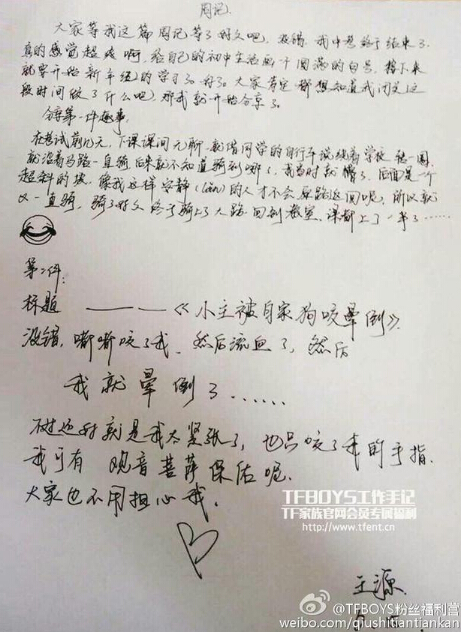 周记
大家等我这篇周记等了好久吧，没错，我中考终于结束了，
真的感觉超爽啊，给自己的初中生活画个圆满的句号，接下来
就要开始新年级的学习了。好了，大家肯定都想知道我闭关这
段时间做了什么吧，那我就开始分享了。
分享第一件趣事，
在考试前几天，下课课间无聊，就借同学的自行车说绕着学校骑一圈，
就沿着马路一直骑后来就不知道骑到哪了，我当时就懵了，后面是一个
超斜的坡，像我这样安静 的人才不会原路返回呢，所以就
一直骑，骑了好久终于骑上了大路，回到教室，课都上了一半了……
第二件：
标题 ———《小主被自家狗咬晕倒》.
没错，嘶嘶咬了我，然后流血了，然后
我就晕倒了……
不过还好就是我太紧张了，也只咬了我的手指，
我可有观音菩萨保佑呢，
大家也不用担心我，
TFBOYS工作手记
TF家族官网会员专属福利
http://www.tfent.cn
王源
@TFBOYS粉丝福利营
weibo.com/qiushitiantiankan